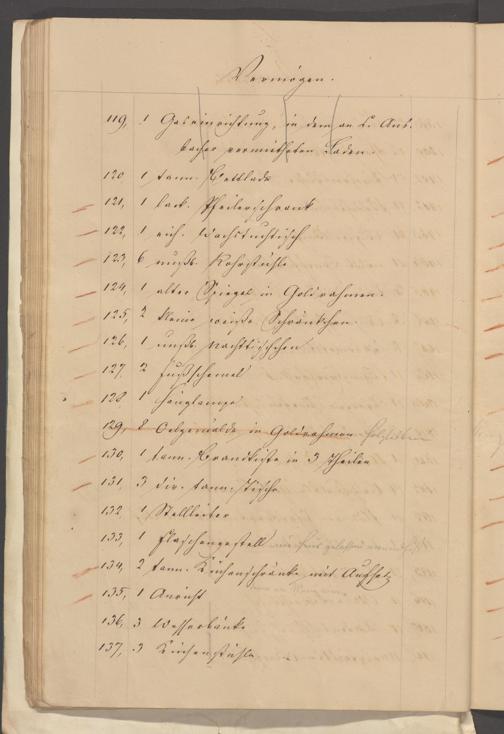 Vermögen.
119, 1 Gaseinrichtung, in dem an L. Ans-
bacher vermietheten Laden.
120 1 tann. Bettlade
121, 1 lack. Pfeilerschrank
122, 1 eich. Wachstuchtisch
123, 6 nußb. Rohrstühle
124, 1 alter Spiegel in Goldrahmen.
125, 2 kleine weiße Schränkchen.
126, 1 nußb. Nachttischchen
127, 2 Fußschemel
128 1 Hänglampe
129, 8 Oelgemälde in Goldrahmen
130, 1 tann. Brandkiste in 3 Theilen
131, 3 div. tann. Tische
132 1 Stellleiter
133, 1 Flaschengestell
134, 2 tann. Küchenschränke mit Aufsatz
135, 1 Anricht
136, 3 Wasserbänke
137, 3 Küchenstühle